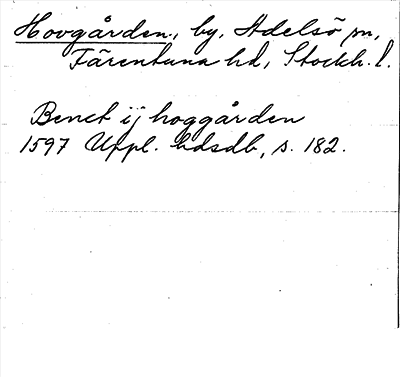 Hovgården, by, Adelsö sn,
Färentuna hd, Stockh. l.
Benct ij hoggården
1597 Uppl. hdsdb, s. 182.